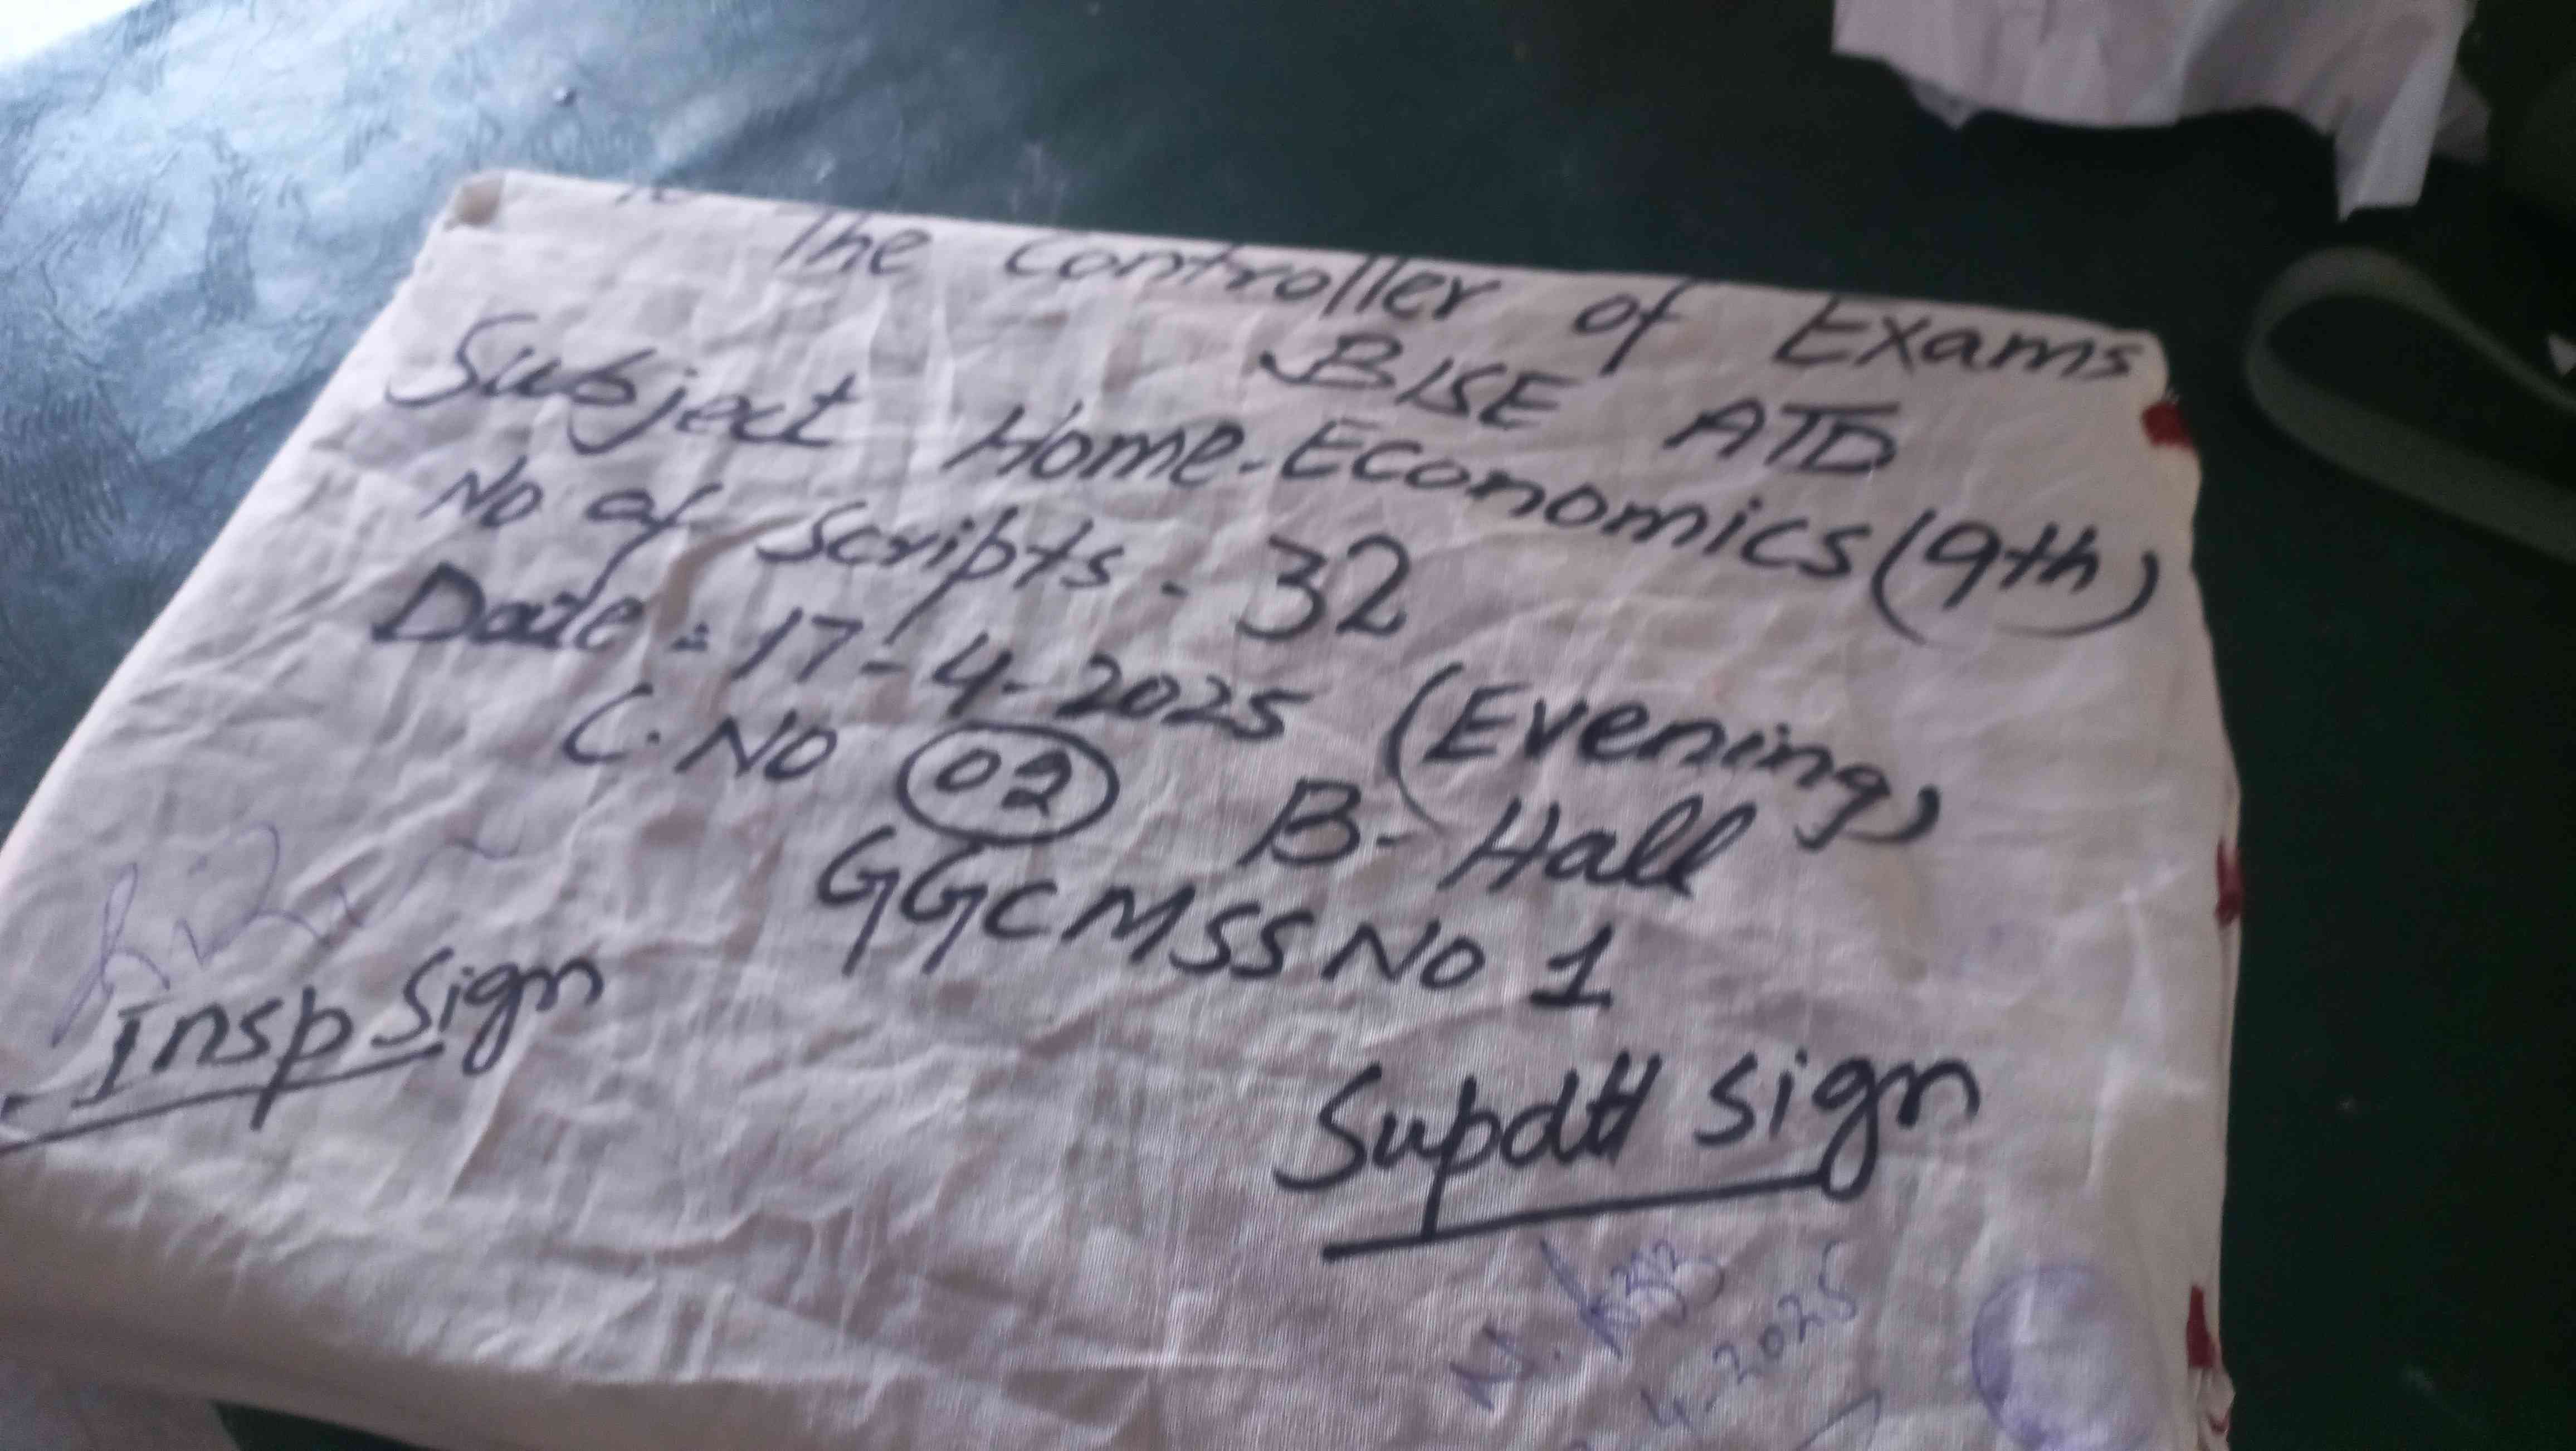 To
The Controller of Exams
BISE ATD
Subject Home-Economics (9th)
No of Scripts - 32
Date = 17-4-2025 (Evening)
C. No 02 B- Hall
GGCMSS No 1
Insp Sign
Supdtt sign
4-2025